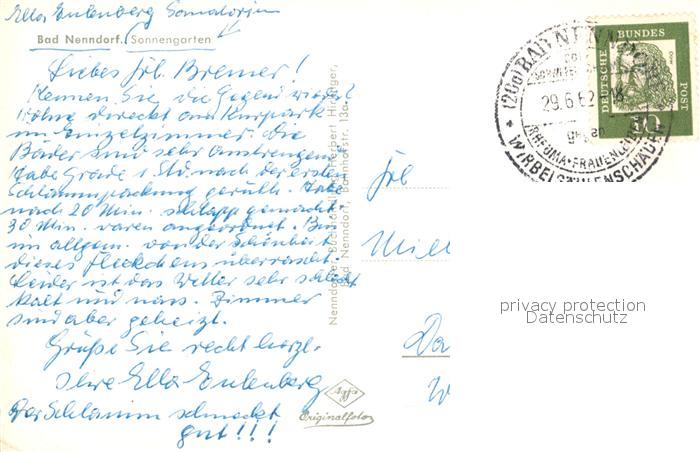 Ella Eulenberg Sanatorium
Bad Nenndorf. Sonnengarten
Liebes Frl. Bremer!
Kennen Sie die Gegend wieder?
Wohne direkt am Kurpark
im Einzelzimmer. Die
Bäder sind sehr anstrengend.
Habe Grade 1 Std. nach der ersten
Schlammpackung geruht. Habe
nach 20 Min. schlapp gemacht.
30 Min. waren angeordnet. Bin
im allgem. von der Schönheit
dieses Fleckchens überrascht.
Leider ist das Wetter sehr schlecht
kalt und nass. Zimmer
sind aber geheizt.
Grüße Sie recht herzl.
Ihre Ella Eulenberg
Der Schlamm schmeckt
gut!!!
Nenndorfer Buchhandlung Herbert
Bad Nenndorf, Bahnhofstr. 13a
Agfa
Originalfoto
Frl
Da
W
(20a) BAD NENNDORF
29.6.62
RHEUMA-FRAUENLEIDEN
WIRBELSÄULENSCHÄDEN
DEUTSCHE BUNDESPOST
privacy protection
Datenschutz